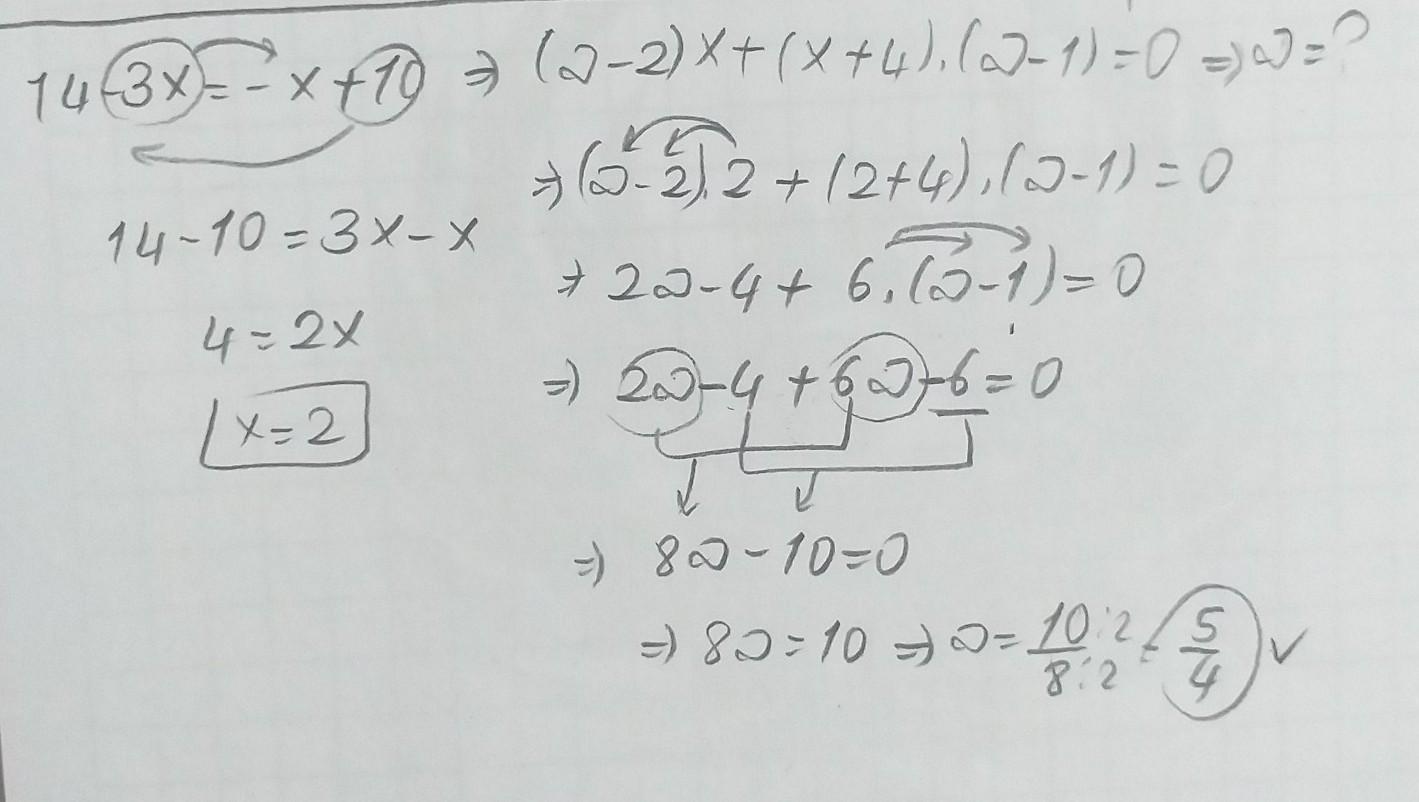 14-3x=-x+10 ⇒ (a-2)x+(x+4).(a-1)=0 ⇒ a=?
⇒ (a-2).2+(2+4).(a-1)=0
14-10=3x-x
⇒ 2a-4+6.(a-1)=0
4=2x
⇒ 2a-4+6a-6=0
x=2
⇒ 8a-10=0
⇒ 8a=10 ⇒ a=10:2/8:2=5/4 ✓